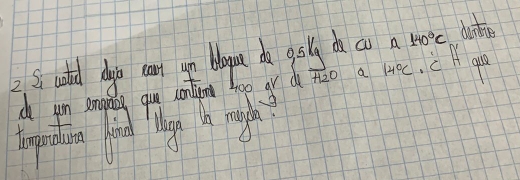 2. Si usted deja caer un bloque de 0,5Kg de cu a 140°C dentro
de un envase que contiene 400 gr de H2O a 14°C. ¿ A que
temperatura final llega la mezcla?